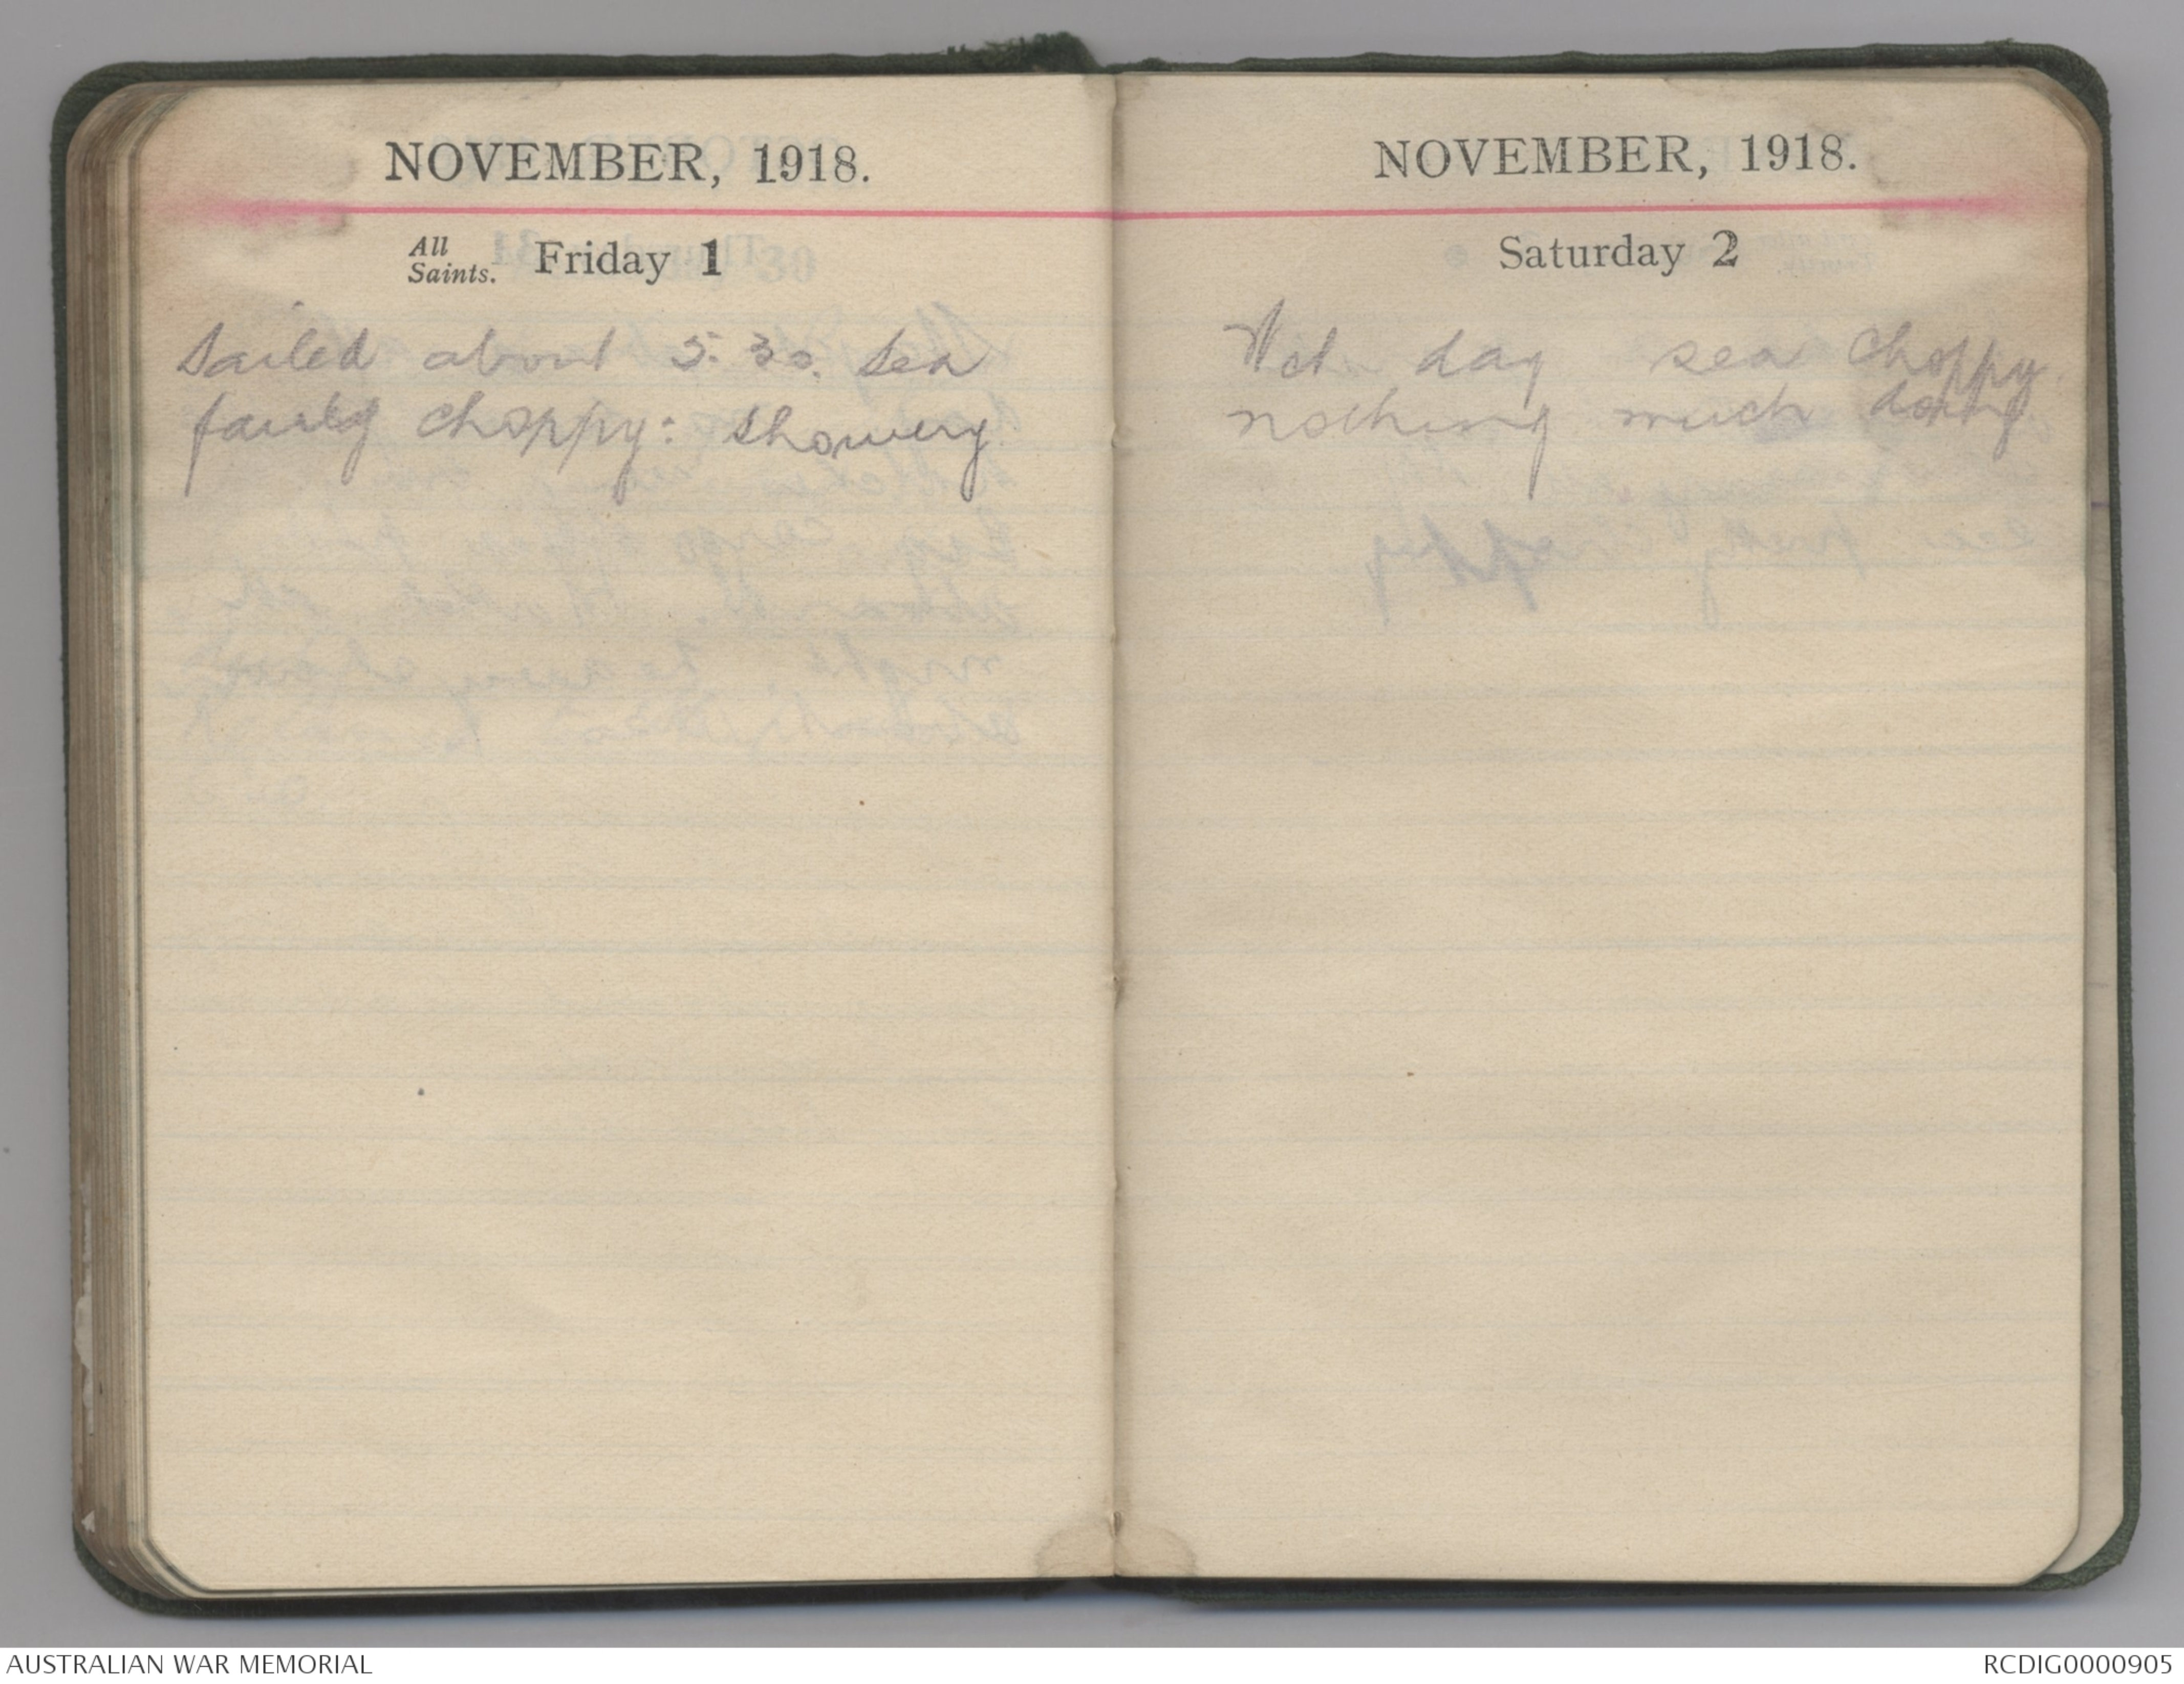 NOVEMBER, 1918.
All Saints. Friday 1
Sailed about 5.30. Sea
fairly choppy: showery
NOVEMBER, 1918.
Saturday 2
Wet day sea choppy.
nothing much doing
AUSTRALIAN WAR MEMORIAL
RCDIG0000905